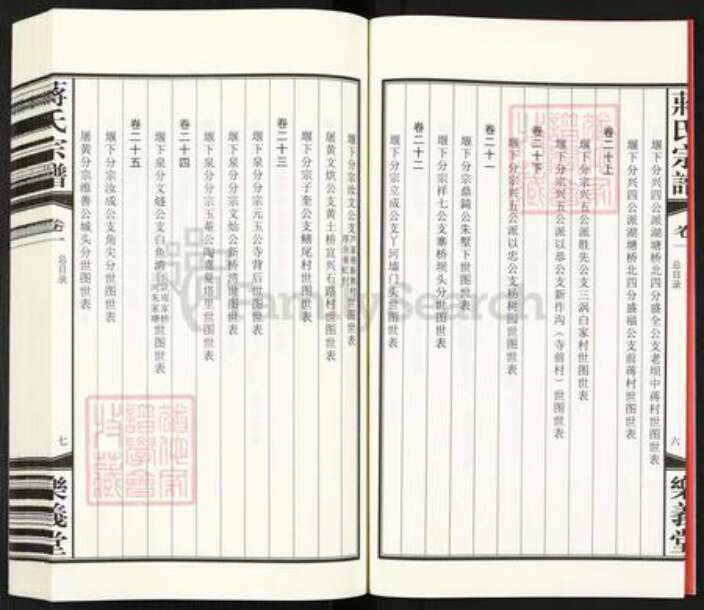 蔣氏宗譜
卷一
总目录
六
樂義堂
堰下分兴四公派湖塘桥北四分盛全公支老坝中蒋村世图世表
堰下分兴四公派湖塘桥北四分盛福公支前蒋村世图世表
卷二十上
堰下分宗兴五公派胜先公支三涡白家村世图世表
堰下分宗兴五公派以恭公支新作沟（寺前村）世图世表
卷二十下
堰下分宗兴五公派以忠公支杨树园世图世表
卷二十一
堰下分宗鼎鏑公朱墅下世图世表
堰下分宗祥七公支寨桥坝头分世图世表
卷二十二
堰下分宗立成公支丫河墙门头世图世表
堰下分宗汝文公支世图世表
屠黄文烘公支黄土桥宜兴石路村世图世表
堰下分宗子奎公支鳝尾村世图世表
卷二十三
堰下泉分分宗元玉公寺背后世图世表
堰下泉分分宗文灿公新桥湾世图世表
堰下泉分分宗玉菴公陶遗夏埝里世图世表
卷二十四
堰下泉分文燧公支白鱼湾世图世表
卷二十五
堰下分宗汝成公支角尖分世图世表
屠黄分宗淮善公城头分世图世表
蔣氏宗譜
卷一
总目录
七
樂義堂
FamilySearch